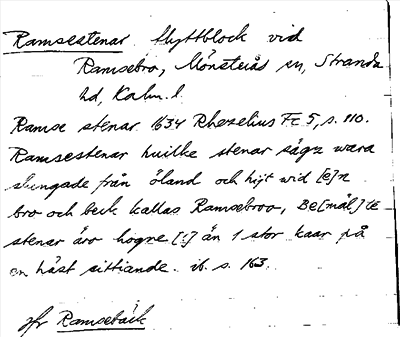 Ramsestenar. flyttblock vid
Ramsebro, Mönsterås sn, Stranda
hd, Kalm. l.
Ramse stenar. 1634 Rhezelius Fc 5, s. 110.
Ramsestenar huilke stenar sägz wara
slungade från öland och hijt wid [e]n
bro och beck kallas Ramsebroo, Be[mäl]te
stenar äro högre [!] än 1 stor kaar på
en häst sittiande. ib. s. 163.
jfr Ramsebäck